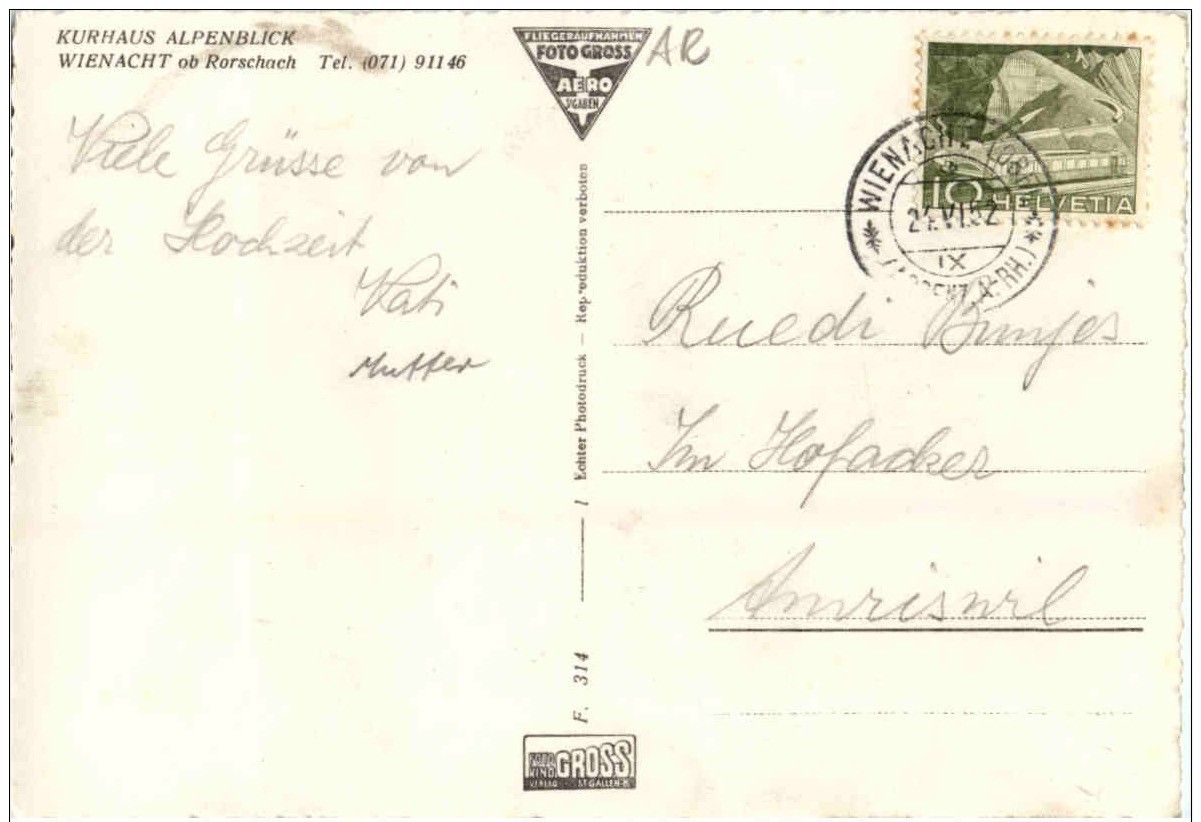 KURHAUS ALPENBLICK
WIENACHT ob Rorschach Tel. (071) 91146
Viele Grüsse von
der Hochzeit
Vati
Mutter
FLIEGERAUFNAHMEN
FOTO GROSS
AERO
ST.GALLEN
AR
Echter Photodruck — Reproduktion verboten
F. 314
GROSS
VERLAG ST.GALLEN
10 HELVETIA
WIENACHT
VI.52
IX
A. RH.)
Ruedi Bunjes
Im Hofacker
Amriswil